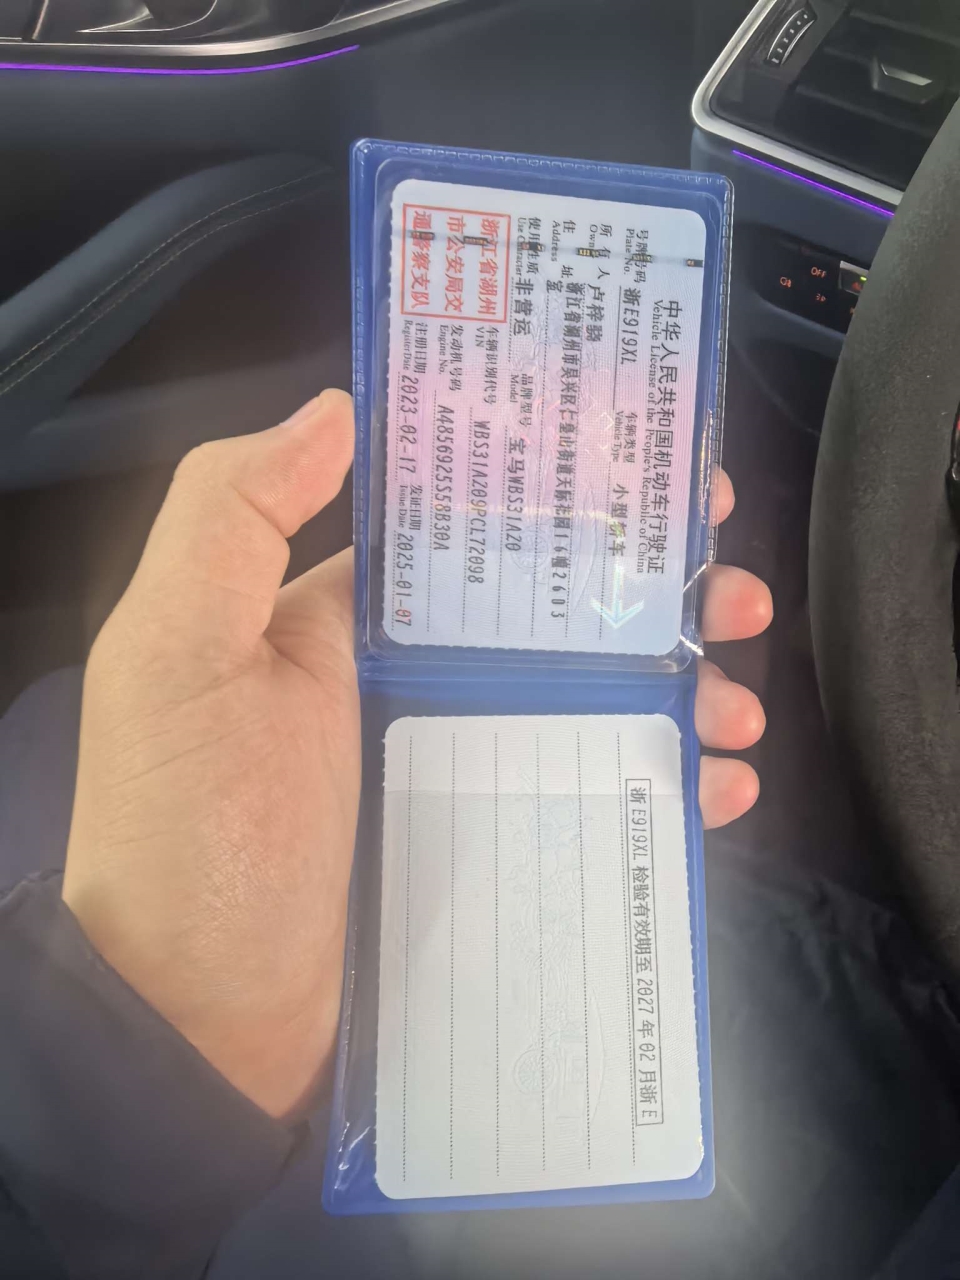 中华人民共和国机动车行驶证
Vehicle License of the People's Republic of China
号牌号码 浙E919XL 车辆类型 小型轿车
Plate No. Vehicle Type
所有人 卢梓骁
Owner
住址 浙江省湖州市吴兴区仁皇山街道天际花园16幢2603
Address 室
使用性质 非营运 品牌型号 宝马WBS31AZ0
Use Character Model
浙江省湖州
市公安局交
通警察支队
车辆识别代号 WBS31AZ09PCL72098
VIN
发动机号码 A4856925S58B30A
Engine No.
注册日期 2023-02-17 发证日期 2025-01-07
Register Date Issue Date
浙E919XL 检验有效期至 2027 年 02 月浙E
OFF